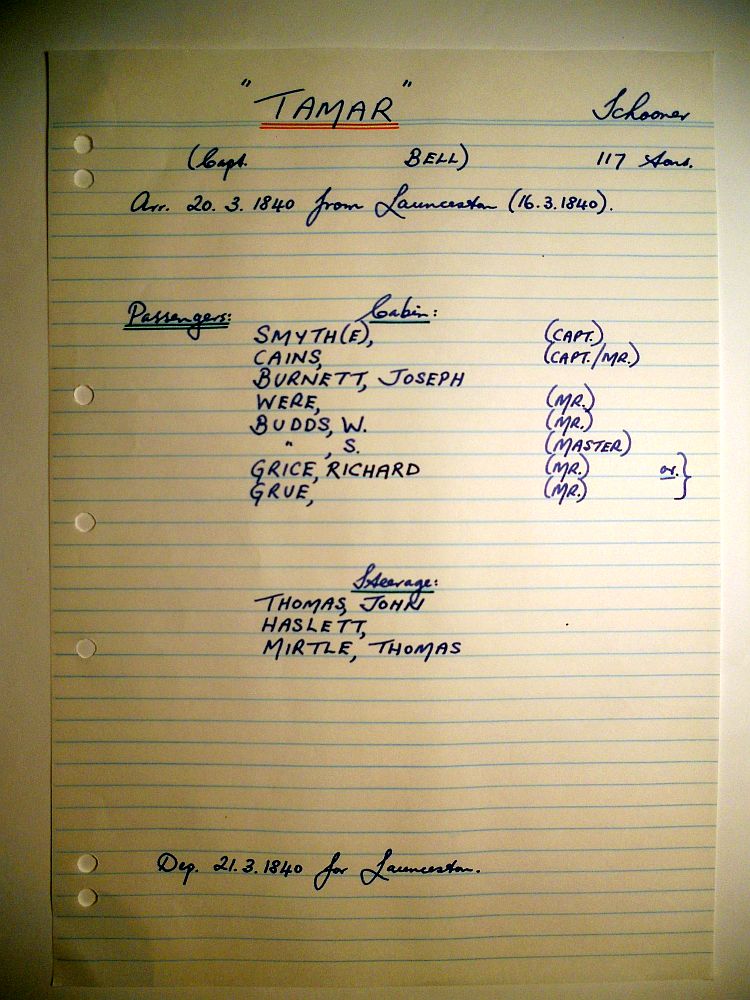 "TAMAR" Schooner
(Capt. BELL) 117 tons.
Arr. 20. 3. 1840 from Launceston (16.3.1840).
Passengers: Cabin:
SMYTH(E), (CAPT.)
CAINS, (CAPT./MR.)
BURNETT, JOSEPH
WERE, (MR.)
BUDDS, W. (MR.)
" , S. (MASTER)
GRICE, RICHARD (MR.) or. }
GRUE, (MR.)
Steerage:
THOMAS, JOHN
HASLETT,
MIRTLE, THOMAS
Dep. 21.3.1840 for Launceston.